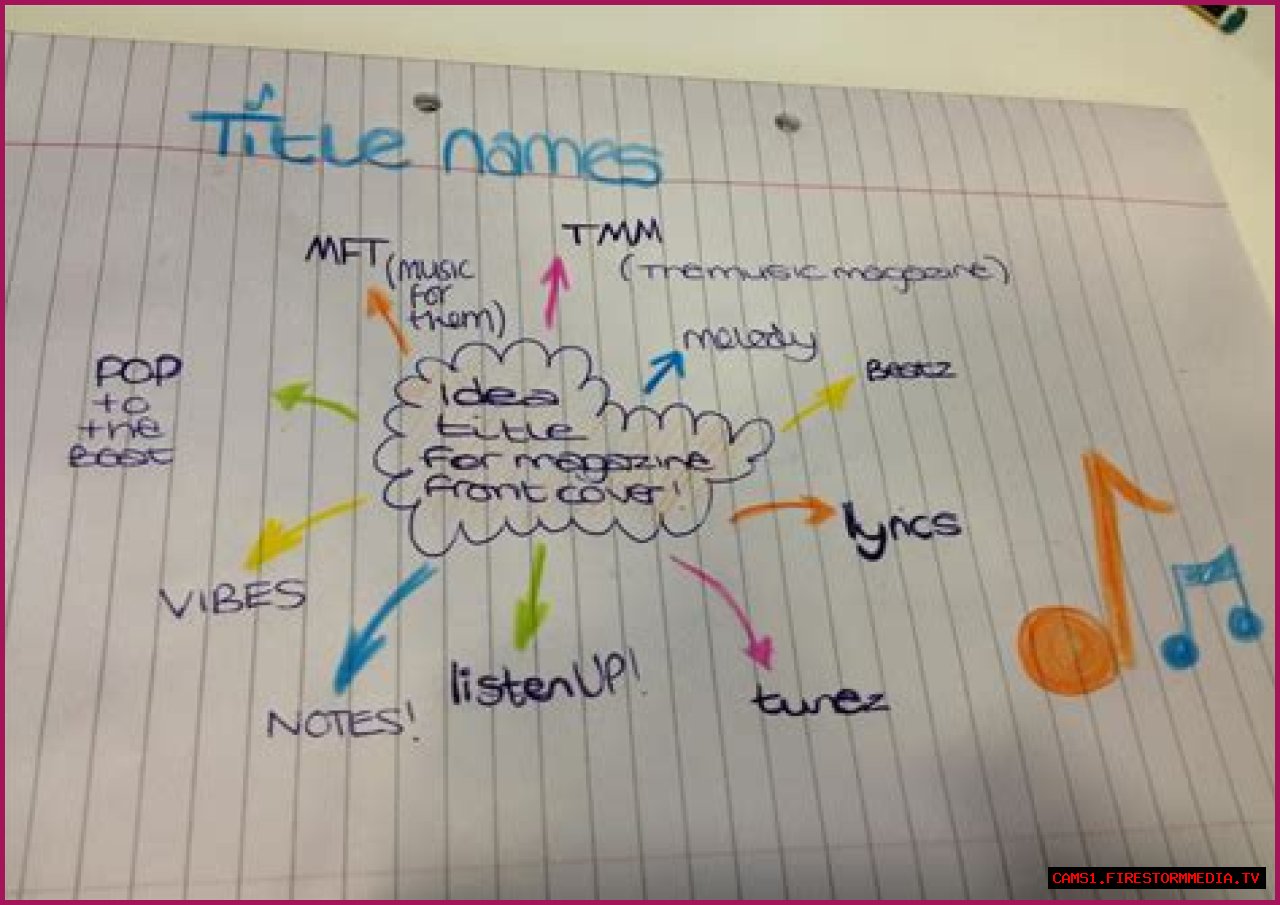 Title names
MFT (music
for
them)
TMM
(The music magazine)
melody
Beatz
POP
to
the
Beat
Idea
title
for magazine
front cover!
lyrics
VIBES
NOTES!
listen UP!
tunez
CAMS1.FIRESTORMMEDIA.TV